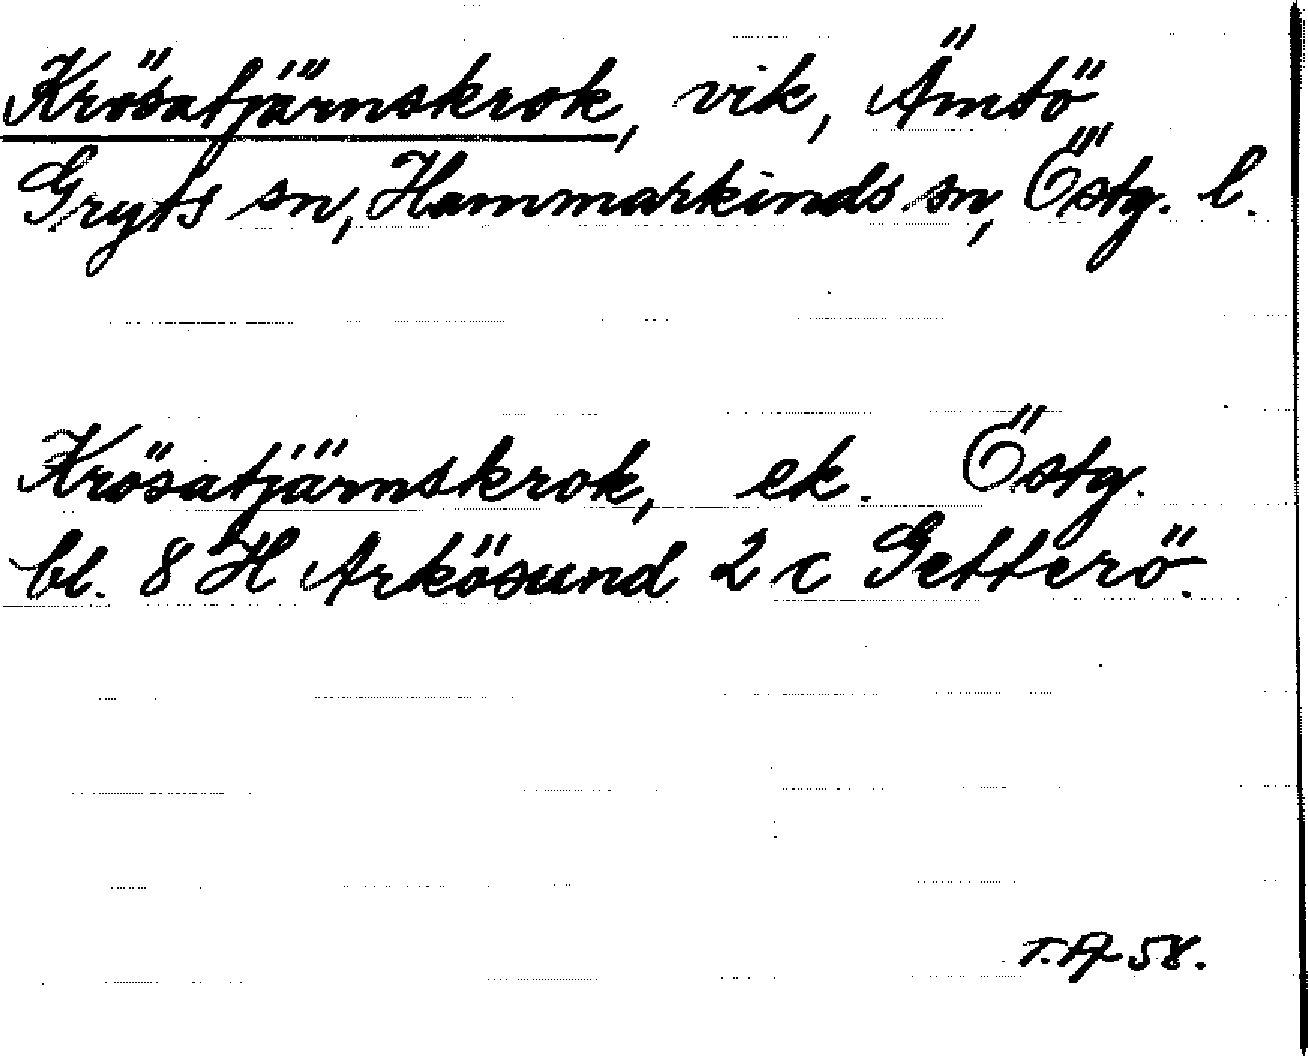 Krösatjärnskrok, vik, Ämtö
Gryts sn, Hammarkinds sn, Östg. l.
Krösatjärnskrok, ek. Östg.
bl. 8 H Arkösund 2 c Getterö.
58.